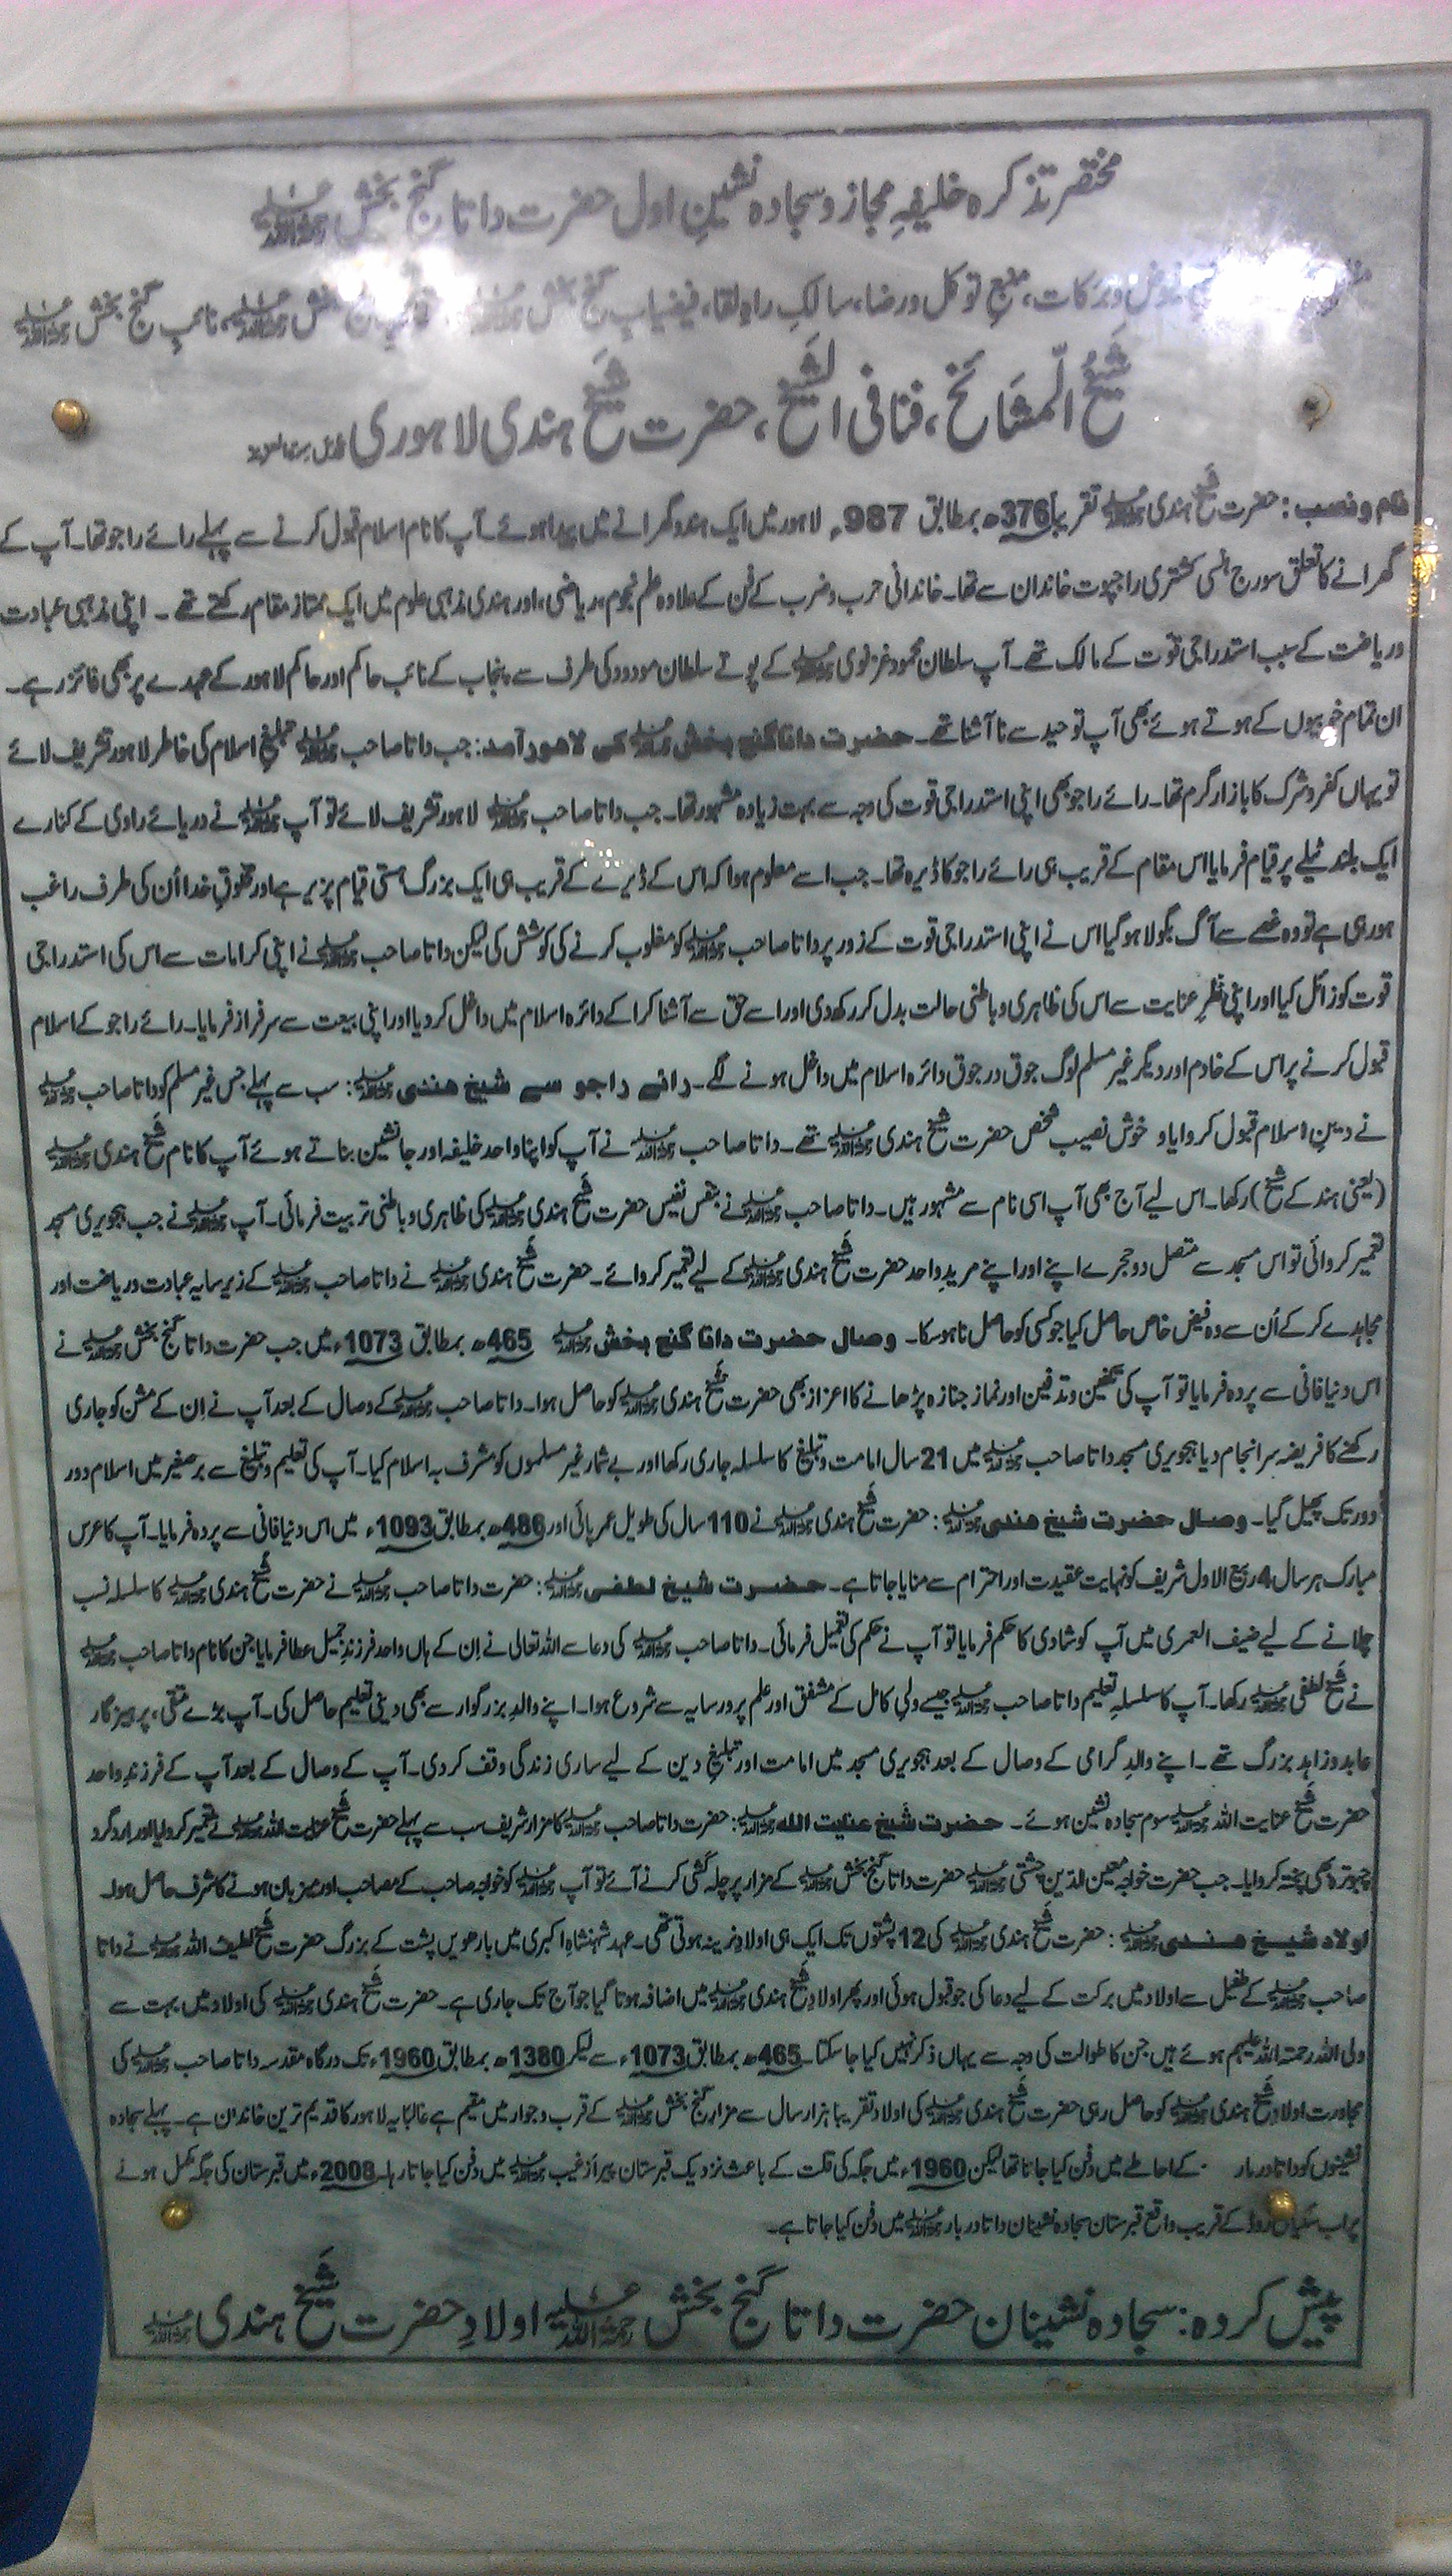 مختصر تذکرہ خلیفہِ مجاز و سجادہ نشینِ اول حضرت داتا گنج بخش رحمۃ اللہ علیہ
و برکات، منبعِ توکل و رضا، سالکِ راہِ لقا، فیضیابِ گنج بخش رحمۃ اللہ علیہ، نائبِ گنج بخش رحمۃ اللہ علیہ
شیخُ المشائخ، فنا فی الشیخ، حضرت شیخ ہندی لاہوری
نام و نسب: حضرت شیخ ہندی رحمۃ اللہ علیہ تقریباً 376ھ بمطابق 987ء لاہور میں ایک ہندو گھرانے میں پیدا ہوئے۔ آپ کا نام اسلام قبول کرنے سے پہلے رائے راجو تھا۔ آپ کے
گھرانے کا تعلق سورج بنسی کشتری راجپوت خاندان سے تھا۔ خاندانی حرب و ضرب کے فن کے علاوہ علم نجوم، ریاضی، اور ہندی مذہبی علوم میں ایک ممتاز مقام رکھتے تھے۔ اپنی مذہبی عبادت
و ریاضت کے سبب استدراجی قوت کے مالک تھے۔ آپ سلطان محمود غزنوی رحمۃ اللہ علیہ کے پوتے سلطان مودود کی طرف سے پنجاب کے نائب حاکم اور حاکم لاہور کے عہدے پر بھی فائز رہے۔
ان تمام خوبیوں کے ہوتے ہوئے بھی آپ توحید سے نا آشنا تھے۔ حضرت داتا گنج بخش رحمۃ اللہ علیہ کی لاہور آمد: جب داتا صاحب رحمۃ اللہ علیہ تبلیغِ اسلام کی خاطر لاہور تشریف لائے
تو یہاں کفر و شرک کا بازار گرم تھا۔ رائے راجو بھی اپنی استدراجی قوت کی وجہ سے بہت زیادہ مشہور تھا۔ جب داتا صاحب رحمۃ اللہ علیہ لاہور تشریف لائے تو آپ رحمۃ اللہ علیہ نے دریائے راوی کے کنارے
ایک بلند ٹیلے پر قیام فرمایا اس مقام کے قریب ہی رائے راجو کا ڈیرہ تھا۔ جب اسے معلوم ہوا کہ اس کے ڈیرے کے قریب ہی ایک بزرگ ہستی قیام پزیر ہے اور مخلوقِ خدا اُن کی طرف راغب
ہو رہی ہے تو وہ غصے سے آگ بگولا ہو گیا اس نے اپنی استدراجی قوت کے زور پر داتا صاحب رحمۃ اللہ علیہ کو مغلوب کرنے کی کوشش کی لیکن داتا صاحب رحمۃ اللہ علیہ نے اپنی کرامات سے اس کی استدراجی
قوت کو زائل کیا اور اپنی نظرِ عنایت سے اس کی ظاہری و باطنی حالت بدل کر رکھ دی اور اسے حق سے آشنا کرا کے دائرہ اسلام میں داخل کر دیا اور اپنی بیعت سے سرفراز فرمایا۔ رائے راجو کے اسلام
قبول کرنے پر اس کے خادم اور دیگر غیر مسلم لوگ جوق در جوق دائرہ اسلام میں داخل ہونے لگے۔ رائے راجو سے شیخ ہندی رحمۃ اللہ علیہ: سب سے پہلے جس غیر مسلم کو داتا صاحب رحمۃ اللہ علیہ
نے دینِ اسلام قبول کروایا وہ خوش نصیب شخص حضرت شیخ ہندی رحمۃ اللہ علیہ تھے۔ داتا صاحب رحمۃ اللہ علیہ نے آپ کو اپنا واحد خلیفہ اور جانشین بناتے ہوئے آپ کا نام شیخ ہندی رحمۃ اللہ علیہ
(یعنی ہند کے شیخ) رکھا۔ اس لیے آج بھی آپ اسی نام سے مشہور ہیں۔ داتا صاحب رحمۃ اللہ علیہ نے بنفس نفیس حضرت شیخ ہندی رحمۃ اللہ علیہ کی ظاہری و باطنی تربیت فرمائی۔ آپ رحمۃ اللہ علیہ نے جب ہجویری مسجد
تعمیر کروائی تو اس مسجد سے متصل دو حجرے اپنے اور اپنے مریدِ واحد حضرت شیخ ہندی رحمۃ اللہ علیہ کے لیے تعمیر کروائے۔ حضرت شیخ ہندی رحمۃ اللہ علیہ نے داتا صاحب رحمۃ اللہ علیہ کے زیرِ سایہ عبادت و ریاضت اور
مجاہدے کر کے اُن سے وہ فیض خاص حاصل کیا جو کسی کو حاصل نا ہو سکا۔ وصال حضرت داتا گنج بخش رحمۃ اللہ علیہ 465ھ بمطابق 1073ء میں جب حضرت داتا گنج بخش رحمۃ اللہ علیہ نے
اس دنیا فانی سے پردہ فرمایا تو آپ کی تکفین و تدفین اور نماز جنازہ پڑھانے کا اعزاز بھی حضرت شیخ ہندی رحمۃ اللہ علیہ کو حاصل ہوا۔ داتا صاحب رحمۃ اللہ علیہ کے وصال کے بعد آپ نے اِن کے مشن کو جاری
رکھنے کا فریضہ سر انجام دیا ہجویری مسجد داتا صاحب رحمۃ اللہ علیہ میں 21 سال امامت و تبلیغ کا سلسلہ جاری رکھا اور بے شمار غیر مسلموں کو مشرف بہ اسلام کیا۔ آپ کی تعلیم و تبلیغ سے برصغیر میں اسلام دور
دور تک پھیل گیا۔ وصال حضرت شیخ ہندی رحمۃ اللہ علیہ: حضرت شیخ ہندی رحمۃ اللہ علیہ نے 110 سال کی طویل عمر پائی اور 486ھ بمطابق 1093ء میں اس دنیا فانی سے پردہ فرمایا۔ آپ کا عرس
مبارک ہر سال 4 ربیع الاول شریف کو نہایت عقیدت اور احترام سے منایا جاتا ہے۔ حضرت شیخ لطفی رحمۃ اللہ علیہ: حضرت داتا صاحب رحمۃ اللہ علیہ نے حضرت شیخ ہندی رحمۃ اللہ علیہ کا سلسلہ نسب
چلانے کے لیے ضعیف العمری میں آپ کو شادی کا حکم فرمایا تو آپ نے حکم کی تعمیل فرمائی۔ داتا صاحب رحمۃ اللہ علیہ کی دعا سے اللہ تعالی نے اِن کے ہاں واحد فرزندِ جمیل عطا فرمایا جن کا نام داتا صاحب رحمۃ اللہ علیہ
نے شیخ لطفی رحمۃ اللہ علیہ رکھا۔ آپ کا سلسلہِ تعلیم داتا صاحب رحمۃ اللہ علیہ جیسے ولیِ کامل کے مشفق اور علم پرور سایہ سے شروع ہوا۔ اپنے والدِ بزرگوار سے بھی دینی تعلیم حاصل کی۔ آپ بڑے متقی، پرہیزگار
عابد و زاہد بزرگ تھے۔ اپنے والدِ گرامی کے وصال کے بعد ہجویری مسجد میں امامت اور تبلیغِ دین کے لیے ساری زندگی وقف کر دی۔ آپ کے وصال کے بعد آپ کے فرزندِ واحد
حضرت شیخ عنایت اللہ رحمۃ اللہ علیہ سوم سجادہ نشین ہوئے۔ حضرت شیخ عنایت اللہ رحمۃ اللہ علیہ: حضرت داتا صاحب رحمۃ اللہ علیہ کا مزار شریف سب سے پہلے حضرت شیخ عنایت اللہ رحمۃ اللہ علیہ نے تعمیر کروایا اور ارد گرد
چبوترہ بھی پختہ کروایا۔ جب حضرت خواجہ معین الدین چشتی رحمۃ اللہ علیہ حضرت داتا گنج بخش رحمۃ اللہ علیہ کے مزار پر چلہ کشی کرنے آئے تو آپ رحمۃ اللہ علیہ کو خواجہ صاحب کے مصاحب اور میزبان ہونے کا شرف حاصل ہوا۔
اولاد شیخ ہندی رحمۃ اللہ علیہ: حضرت شیخ ہندی رحمۃ اللہ علیہ کی 12 پشتوں تک ایک ہی اولادِ نرینہ ہوتی تھی۔ عہد شہنشاہ اکبری میں بارھویں پشت کے بزرگ حضرت شیخ لطیف اللہ رحمۃ اللہ علیہ نے داتا
صاحب رحمۃ اللہ علیہ کے طفیل سے اولاد میں برکت کے لیے دعا کی جو قبول ہوئی اور پھر اولادِ شیخ ہندی رحمۃ اللہ علیہ میں اضافہ ہوتا گیا جو آج تک جاری ہے۔ حضرت شیخ ہندی رحمۃ اللہ علیہ کی اولاد میں بہت سے
ولی اللہ رحمتہ اللہ علیہم ہوئے ہیں جن کا طوالت کی وجہ سے یہاں ذکر نہیں کیا جا سکتا۔ 465ھ بمطابق 1073ء سے لیکر 1380ھ بمطابق 1960ء تک درگاہ مقدسہ داتا صاحب رحمۃ اللہ علیہ کی
مجاورت اولادِ شیخ ہندی رحمۃ اللہ علیہ کو حاصل رہی حضرت شیخ ہندی رحمۃ اللہ علیہ کی اولاد تقریبا ہزار سال سے مزار گنج بخش رحمۃ اللہ علیہ کے قرب و جوار میں مقیم ہے غالباً یہ لاہور کا قدیم ترین خاندان ہے۔ پہلے سجادہ
نشینوں کو داتا دربار کے احاطے میں دفن کیا جاتا تھا لیکن 1960ء میں جگہ کی قلت کے باعث نزدیک قبرستان پیر از غیب رحمۃ اللہ علیہ میں دفن کیا جاتا رہا۔ 2008ء میں قبرستان کی جگہ مکمل ہونے
پر اب سگیاں روڈ کے قریب واقع قبرستان سجادہ نشینان داتا دربار رحمۃ اللہ علیہ میں دفن کیا جاتا ہے۔
پیش کردہ: سجادہ نشینان حضرت داتا گنج بخش رحمۃ اللہ علیہ اولادِ حضرت شیخ ہندی رحمۃ اللہ علیہ